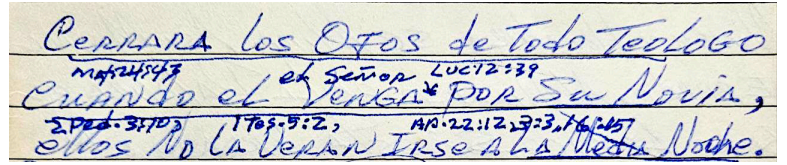 CERRARA los OJOS de Todo TEOLOGO
MAT.24:43 el Señor LUC.12:39
CUANDO el VENGA* POR Su NOVIA,
2Ped.3:10, 1Tes.5:2, AP.22:12,3:3,16:15
ellos NO LA VERAN IRSE A LA Media Noche.